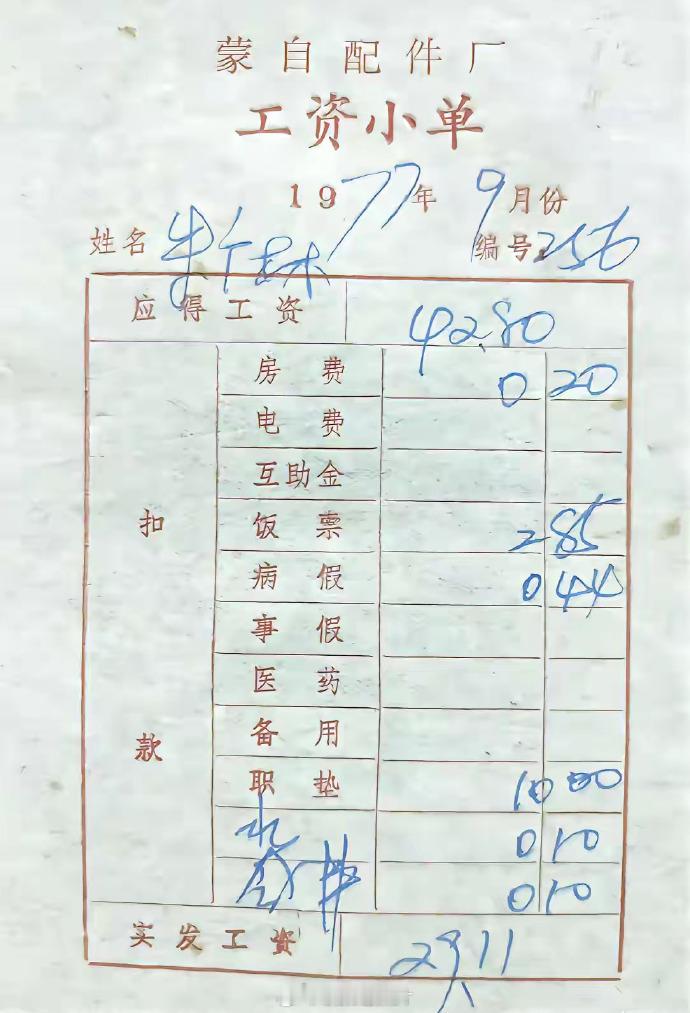 蒙自配件厂
工资小单
1977年9月份
姓名 牛 编号256
应得工资 42.80
扣款
房费 0 20
电费
互助金
饭票 2 85
病假 0 44
事假
医药
备用
职垫 10 00
水 0 10
0 10
实发工资 29 11